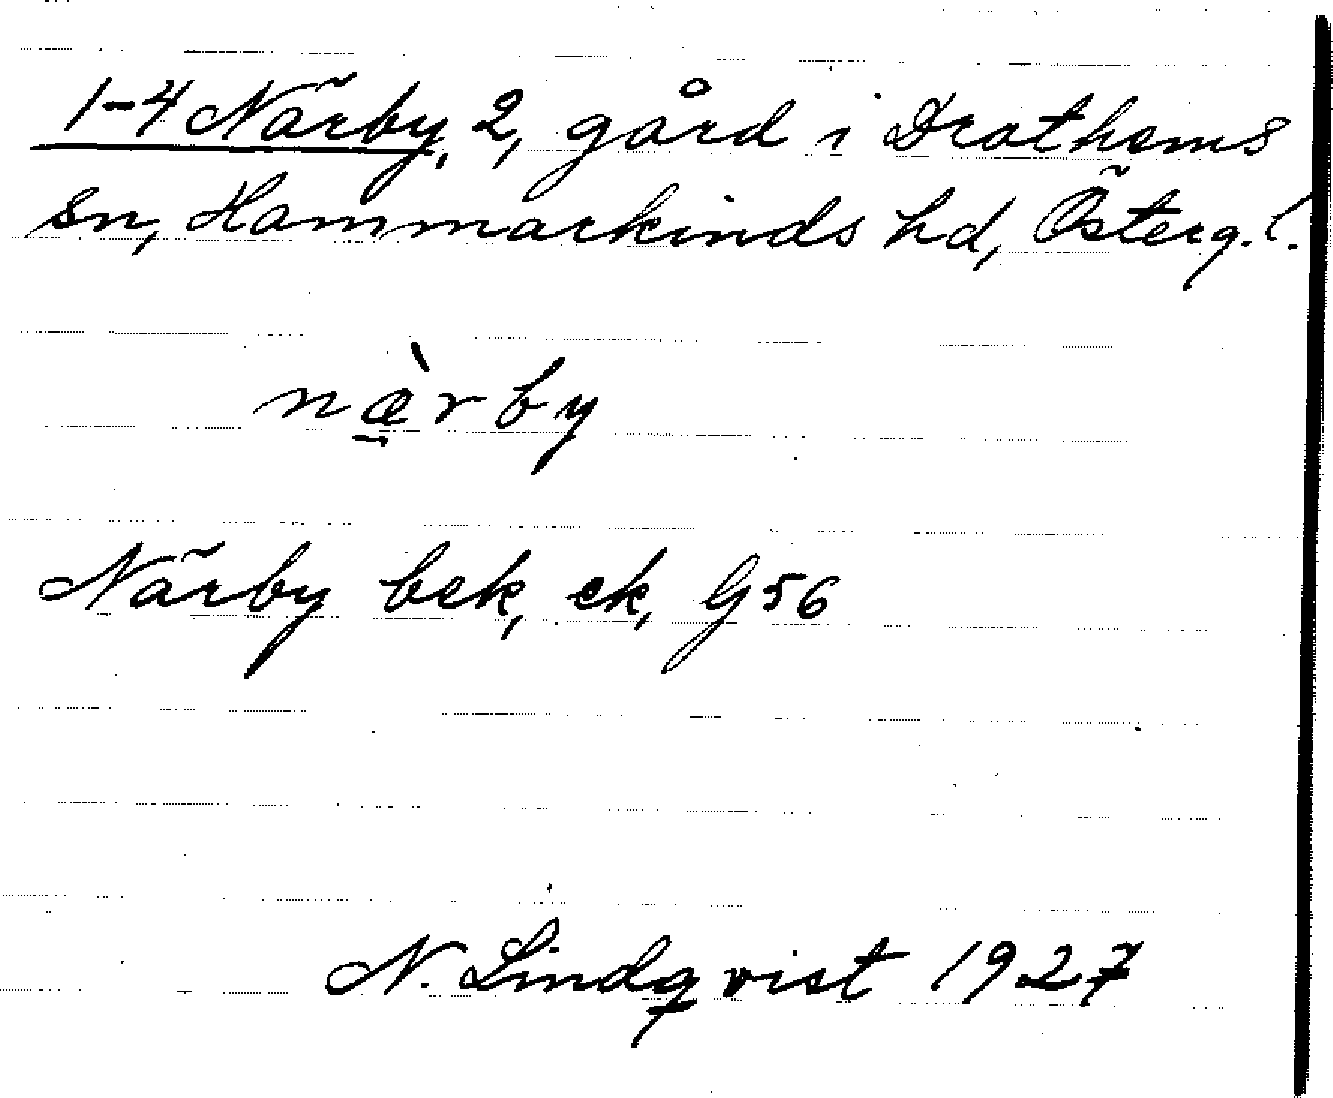 1-4 Närby, 2, gård i Drothems
sn, Hammarkinds hd, Österg. l.
næ̱̀rby
Närby bek, ek, G 56
N. Lindqvist 1927